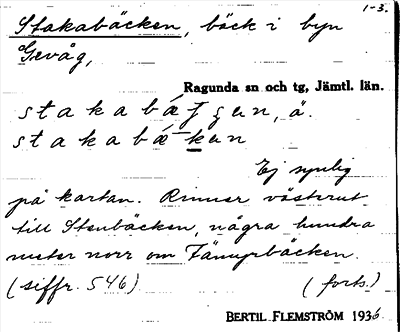 1-3.
Stakabäcken, bäck i byn
Gevåg,
Ragunda sn och tg, Jämtl. län.
stakabæ̀ʃʃen, ä.
stakabæ̀ken
Ej synlig
på kartan. Rinner västerut
till Stenbäcken, några hundra
meter norr om Tännyrbäcken.
(siffr. 546) (forts.)
BERTIL FLEMSTRÖM 1936